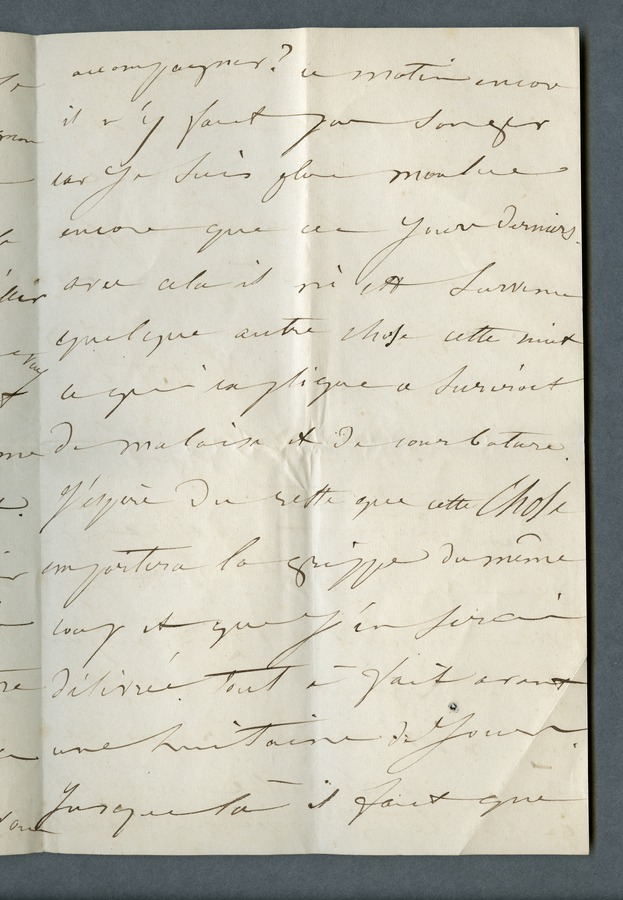 accompagner? ce matin encore
il n'y faut pas songer
car je suis plus moulue
encore que ces jours derniers.
avec cela il m'est survenu
quelque autre chose cette nuit
ce qui explique ce surcroit
de malaise et de courbature.
J'espère du reste que cette chose
emportera la grippe du même
coup et que j'en serai
délivrée tout à fait avant
une huitaine de jours.
Jusque là il faut que